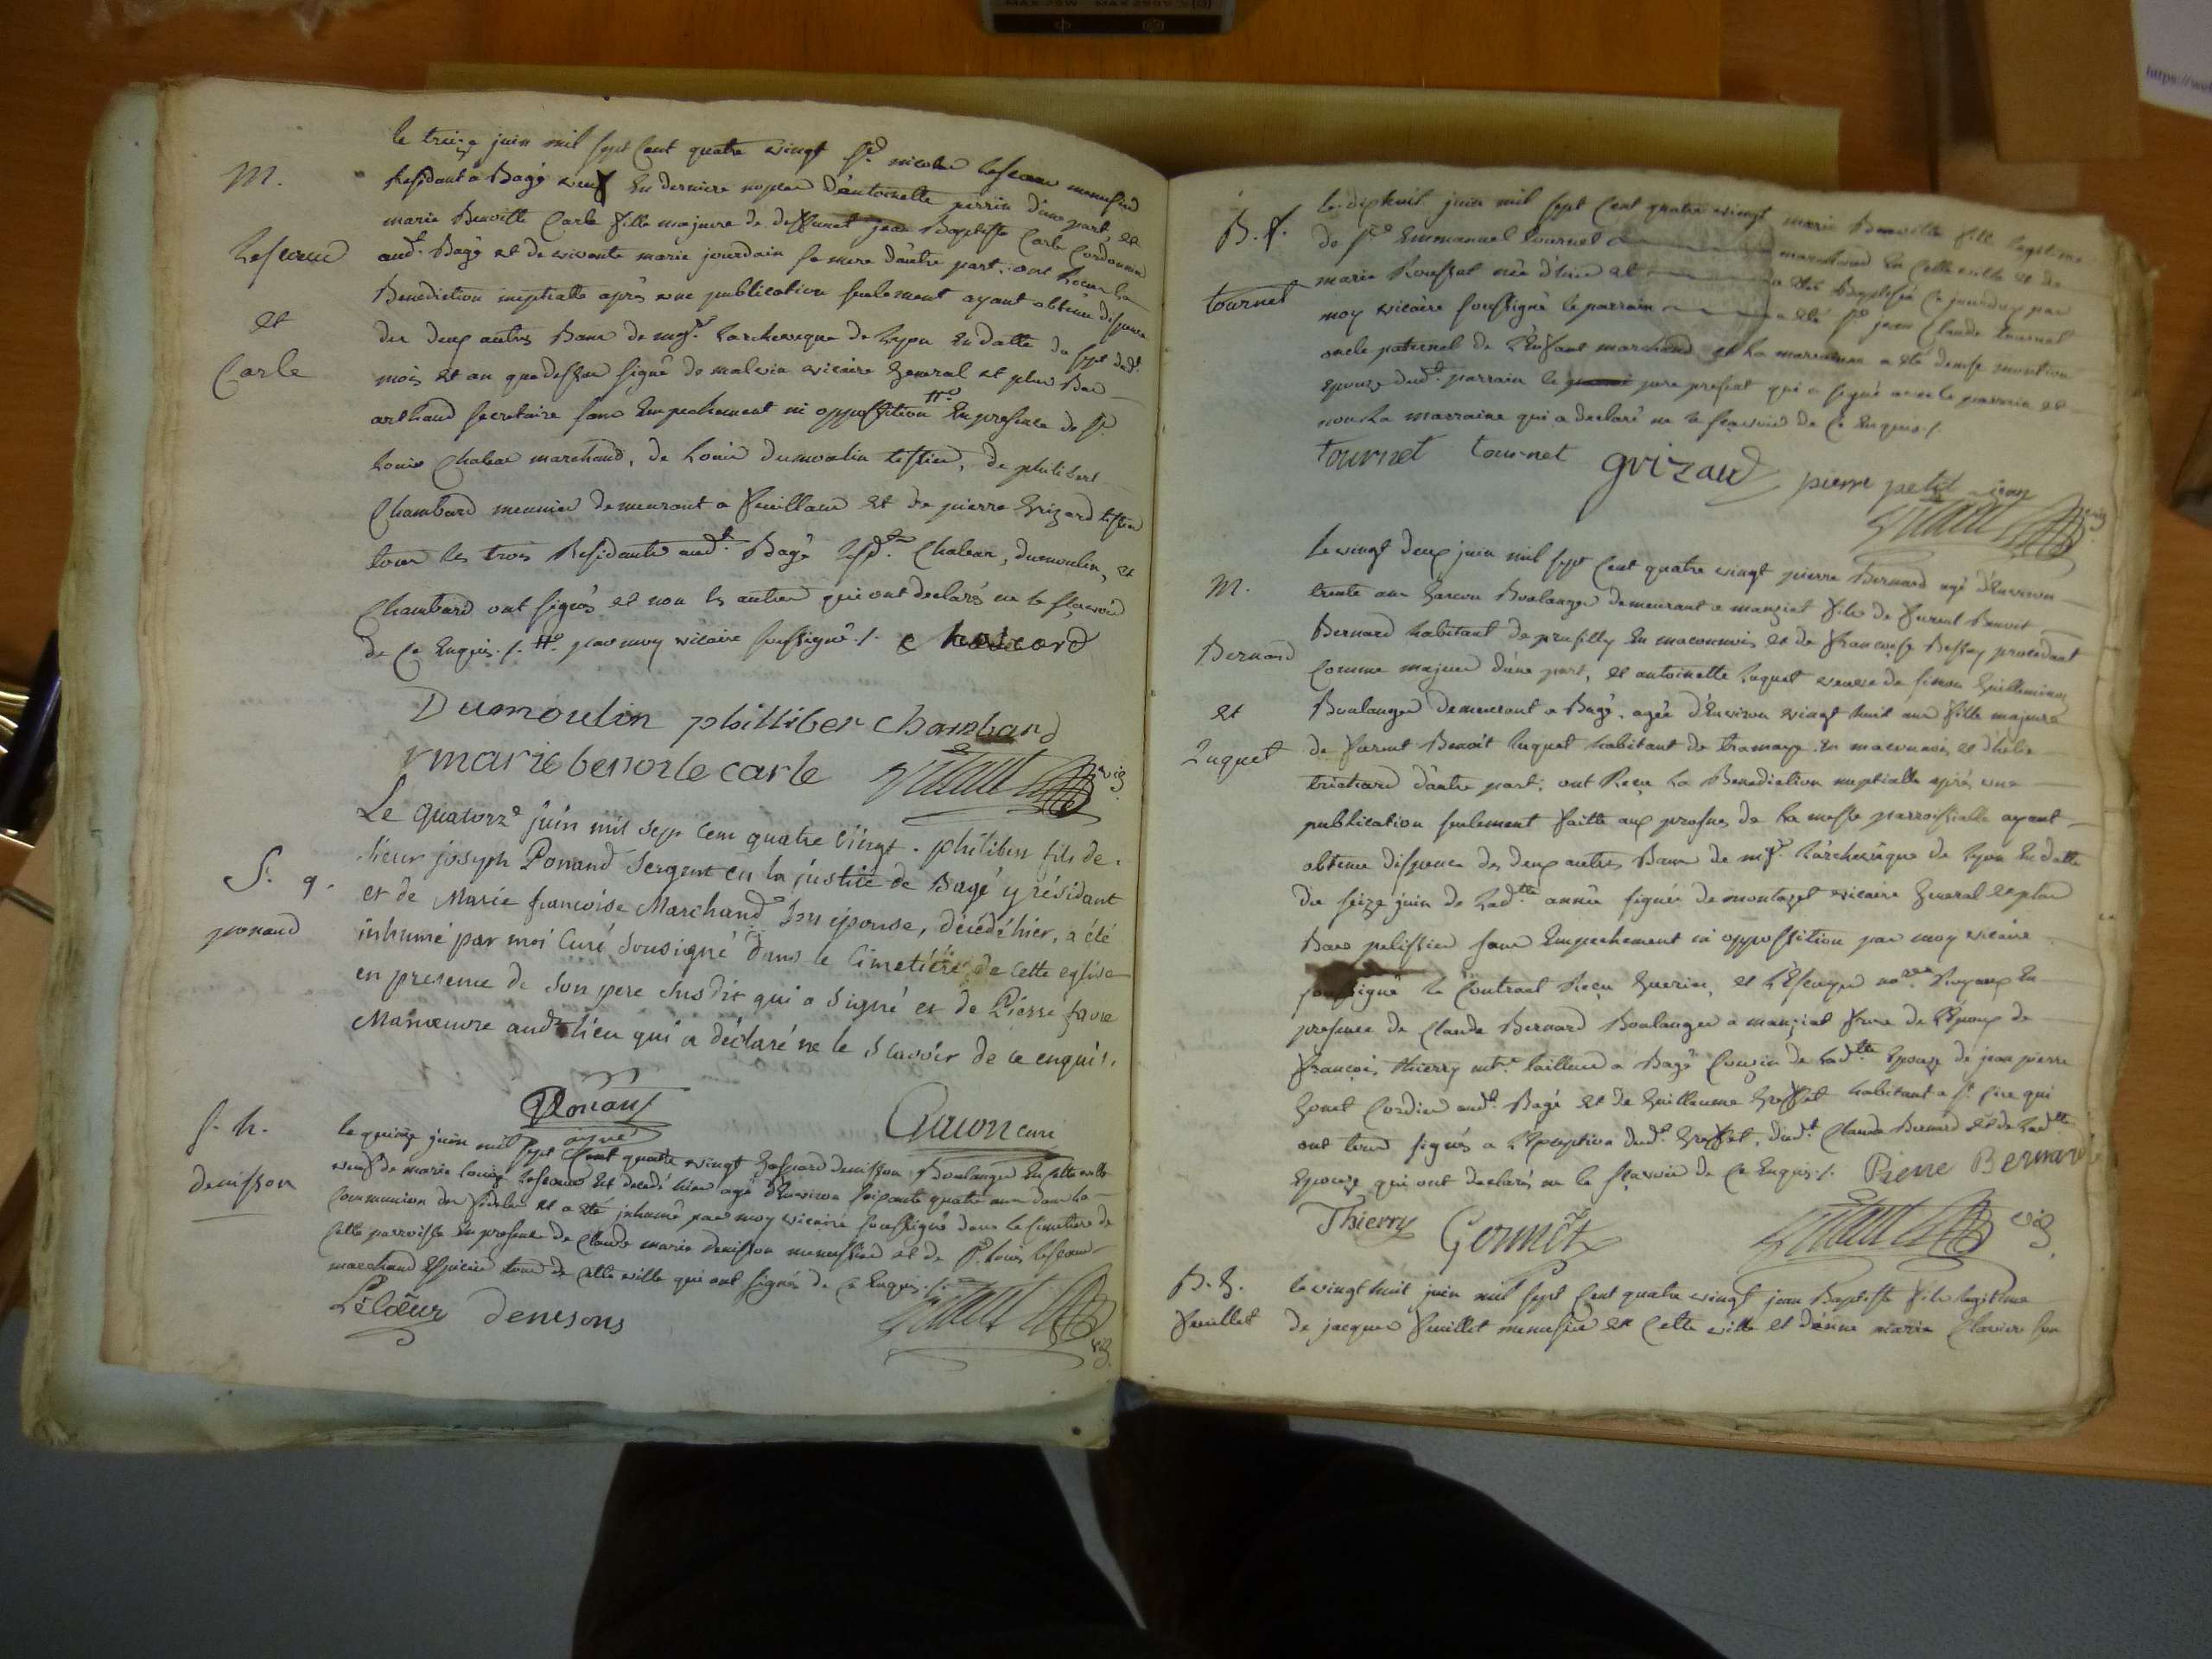 M.
le treize juin mil sept Cent quatre vingt Sr. nicolas Lescœur menusier
Residant a Bagé veuf En derniere nopces d'antoinette perrin d'une part, et
marie Benoitte Carle fille majeure de deffunct jean Baptiste Carle Cordonnier
Lescœur
aud.t Bagé et de vivante marie jourdain sa mere d'autre part; ont Recu La
Benediction nuptialle après une publication seulement ayant obtenu dispence
et
des deux autres Bans de mgr. Larcheveque de Lyon En datte du sept dud.t
Carle
mois et an que dessus signé de malvin vicaire General et plus Bas
arthaud secretaire sans Empechement ni oppossition ## En presence de Sr.
Louis Chalear marchand, de Louis dumoulin tissier, de philibert
Chambard meunier demeurant a feuillans et de pierre Grizard tissier
tous les trois Residants aud.t Bagé Lesd.ts Chalear, dumoulin, et
Chambard ont signés et non les autres qui ont declarés ne le sçavoir
de Ce Enquis ./. ## par moy vicaire soussigné ./.
Dumoulin philliber Chambard
marie benoite carle vic.
Le quatorze juin mil sept Cent quatre vingt. philibert fils de
S. g.
sieur joseph Ponand Sergent en la justice de Bagé y résidant
et de Marie francoise Marchand son épouse, décédé hier, a été
ponand
inhumé par moi Curé Sousigné dans le Cimetière de cette eglise
en presence de son pere susdit qui a signé et de Pierre favre
Manœuvre aud.t lieu qui a déclaré ne le sçavoir de ce enquis.
Ponand
ainé
curé
S. h.
le quinze juin mil sept Cent quatre vingt Gaspard denisson Boulanger En cette ville
denisson
veuf de marie Louise Lescœur Est decedé hier agé d'Environ soixante quatre ans dans La
Communion des fideles et a été inhumé par moy vicaire soussigné dans le Cimetiere de
Cette parroisse En presence de Claude marie denisson menussier et de Sr. Louis Lescœur
marchand Epicier tous de Cette ville qui ont signés de Ce Enquis ./.
Lêcœur denisons
vic.
B. f.
le dixhuit juin mil sept Cent quatre vingt marie Benoitte fille legitime
de Sr. Emmanuel tournet marchand En Cette ville et de
tournet
marie Rousset née d'hier et a été Baptisée Ce jourduy par
moy vicaire soussigné le parrain a été Sr. jean Claude tournet
oncle paternel de L'Enfant marchand et La marraine a été denise
epouze dud.t parrain le pere present qui a signé avec le parrain et
non La marraine qui a declaré ne le sçavoir de Ce Enquis ./.
tournet tournet grizaud pierre petit jean
vic.
M.
le vingt deux juin mil sept Cent quatre vingt pierre Bernard agé d'Environ
trente ans Garcon Boulanger demeurant a manziat fils de furent Benoit
Bernard
Bernard habitant de prusilly En maconnois et de francoise Bessay procedant
Comme majeur d'une part, et antoinette Luquet veuve de simon Guillemin
et
Boulanger demeurant a Bagé, agée d'Environ vingt huit ans fille majeure
Luquet
de furent Benoit Luquet habitant de tramaye En maconnois et d'hele
trichard d'autre part; ont Reçu La Benediction nuptialle après une
publication seulement faitte aux prosnes de La messe parroissialle ayant
obtenu dispence des deux autres Bans de mgr. L'archeveque de Lyon En datte
du seize juin de Lad.tte année signée de montazet vicaire General et plus
Bas pelissier sans Empechement ni oppossition par moy vicaire
soussigné le Contract Reçu Guerin, et L'Escuyer no.res Royaux En
presence de Claude Bernard Boulanger a manziat frere de L'Epoux de
françois thierry m.tre tailleur a Bagé Cousin de Lad.tte Epouze de jean pierre
Gonet Cordier aud.t Bagé et de Guillaume Groffet habitant a St. Cire qui
ont tous signés a L'Exception dud.t Groffet, dud.t Claude Bernard et de Lad.tte
Epouze qui ont declarés ne le sçavoir de Ce Enquis ./. Pierre Bernard
Thierry Gonnet vic.
B. g.
le vingt huit juin mil sept Cent quatre vingt jean Baptiste fils legitime
feuillet
de jacques feuillet menusier en Cette ville et d'anne marie Clavier son